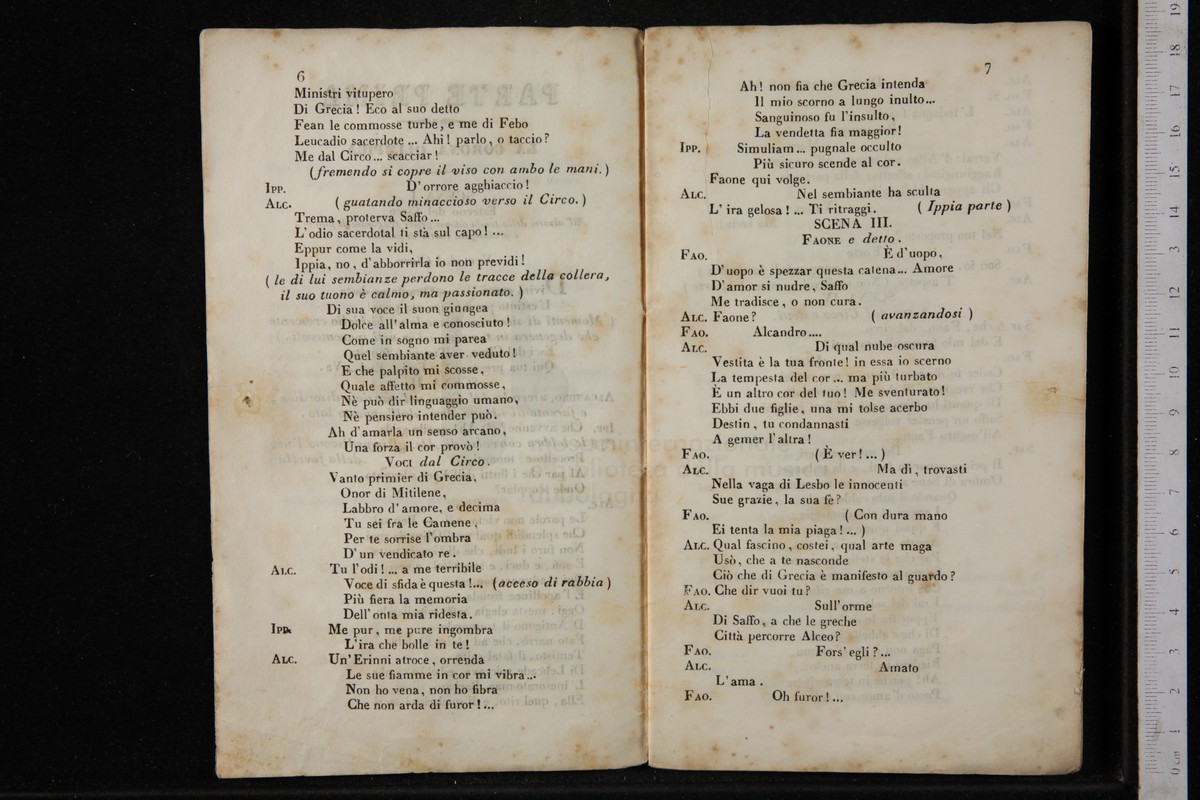 6
Ministri vitupero
Di Grecia! Eco al suo detto
Fean le commosse turbe, e me di Febo
Leucadio sacerdote ... Ahi! parlo, o taccio?
Me dal Circo... scacciar!
(fremendo si copre il viso con ambo le mani.)
IPP. D'orrore agghiaccio!
ALC. (guatando minaccioso verso il Circo.)
Trema, proterva Saffo...
L'odio sacerdotal ti stà sul capo! ...
Eppur come la vidi,
Ippia, no, d'abborrirla io non previdi!
(le di lui sembianze perdono le tracce della collera,
il suo tuono è calmo, ma passionato.)
Di sua voce il suon giungea
Dolce all'alma e conosciuto!
Come in sogno mi parea
Quel sembiante aver veduto!
E che palpito mi scosse,
Quale affetto mi commosse,
Nè può dir linguaggio umano,
Nè pensiero intender può.
Ah d'amarla un senso arcano,
Una forza il cor provò!
VOCI dal Circo.
Vanto primier di Grecia,
Onor di Mitilene,
Labbro d'amore, e decima
Tu sei fra le Camene,
Per te sorrise l'ombra
D'un vendicato re.
ALC. Tu l'odi! ... a me terribile
Voce di sfida è questa!... (acceso di rabbia)
Più fiera la memoria
Dell'onta mia ridesta.
IPP. Me pur, me pure ingombra
L'ira che bolle in te!
ALC. Un'Erinni atroce, orrenda
Le sue fiamme in cor mi vibra...
Non ho vena, non ho fibra
Che non arda di furor!...
7
Ah! non fia che Grecia intenda
Il mio scorno a lungo inulto...
Sanguinoso fu l'insulto,
La vendetta fia maggior!
IPP. Simuliam... pugnale occulto
Più sicuro scende al cor.
Faone qui volge.
ALC. Nel sembiante ha sculta
L'ira gelosa! ... Ti ritraggi. (Ippia parte)
SCENA III.
FAONE e detto.
FAO. È d'uopo,
D'uopo è spezzar questa catena... Amore
D'amor si nudre, Saffo
Me tradisce, o non cura.
ALC. Faone? (avanzandosi)
FAO. Alcandro....
ALC. Di qual nube oscura
Vestita è la tua fronte! in essa io scerno
La tempesta del cor... ma più turbato
È un altro cor del tuo! Me sventurato!
Ebbi due figlie, una mi tolse acerbo
Destin, tu condannasti
A gemer l'altra!
FAO. (È ver!...)
ALC. Ma di, trovasti
Nella vaga di Lesbo le innocenti
Sue grazie, la sua fè?
FAO. (Con dura mano
Ei tenta la mia piaga!...)
ALC. Qual fascino, costei, qual arte maga
Usò, che a te nasconde
Ciò che di Grecia è manifesto al guardo?
FAO. Che dir vuoi tu?
ALC. Sull'orme
Di Saffo, a che le greche
Città percorre Alceo?
FAO. Fors'egli?...
ALC. Amato
L'ama.
FAO. Oh furor!...